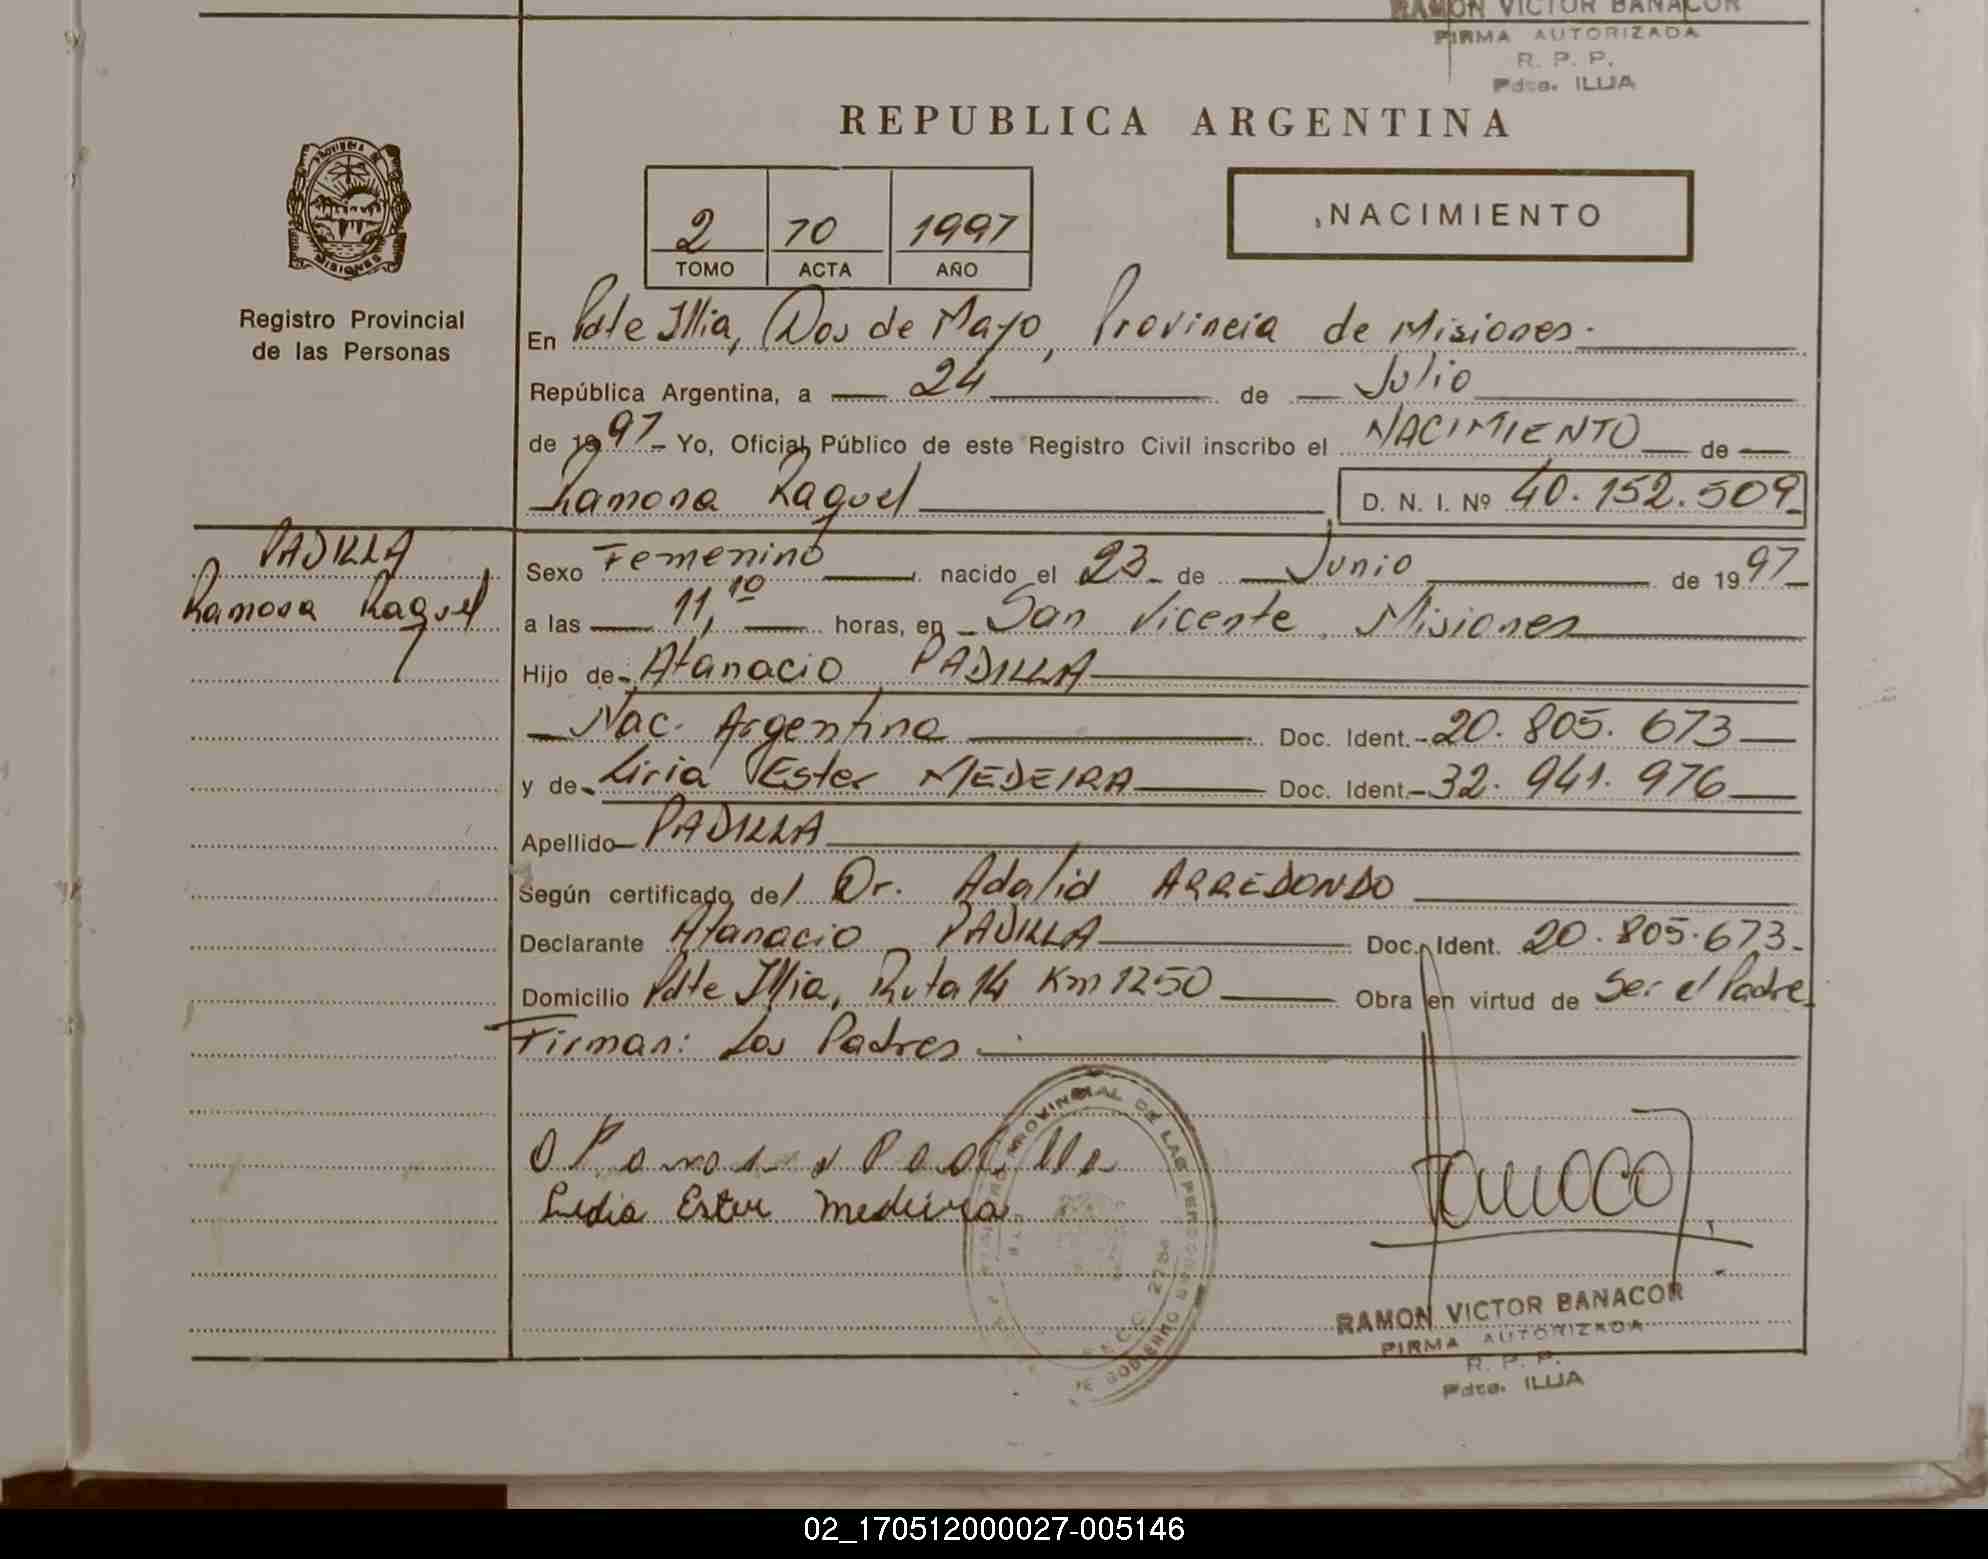 RAMON VICTOR BANACOR
FIRMA AUTORIZADA
R. P. P.
Pdte. ILLIA
REPUBLICA ARGENTINA
PROVINCIA DE
MISIONES
Registro Provincial
de las Personas
2 70 1997
TOMO ACTA AÑO
NACIMIENTO
En Pdte Illia, Dos de Mayo, Provincia de Misiones.
República Argentina, a 24 de Julio
de 1997 Yo, Oficial Público de este Registro Civil inscribo el NACIMIENTO de
Ramona Raquel D. N. I. Nº 40.152.509
PADILLA
Ramona Raquel
Sexo Femenino nacido el 23 de Junio de 1997
a las 11,10 horas, en San Vicente, Misiones
Hijo de Atanacio PADILLA
Nac. Argentina Doc. Ident. 20.805.673
y de Liria Ester MEDEIRA Doc. Ident. 32.941.976
Apellido PADILLA
Según certificado del Dr. Adalid ARREDONDO
Declarante Atanacio PADILLA Doc. Ident. 20.805.673
Domicilio Pdte Illia, Ruta 14 Km 1250 Obra en virtud de Ser el Padre
Firman: Los Padres
Padilla
Lidia Ester Medeira
PROVINCIAL DE LAS PERSONAS
GOBIERNO
RAMON VICTOR BANACOR
FIRMA AUTORIZADA
R. P. P.
Pdte. ILLIA
02_170512000027-005146